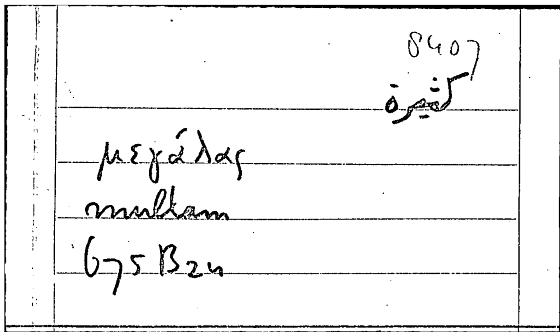 8407
كثيرة
μεγάλας
multam
675 B 24